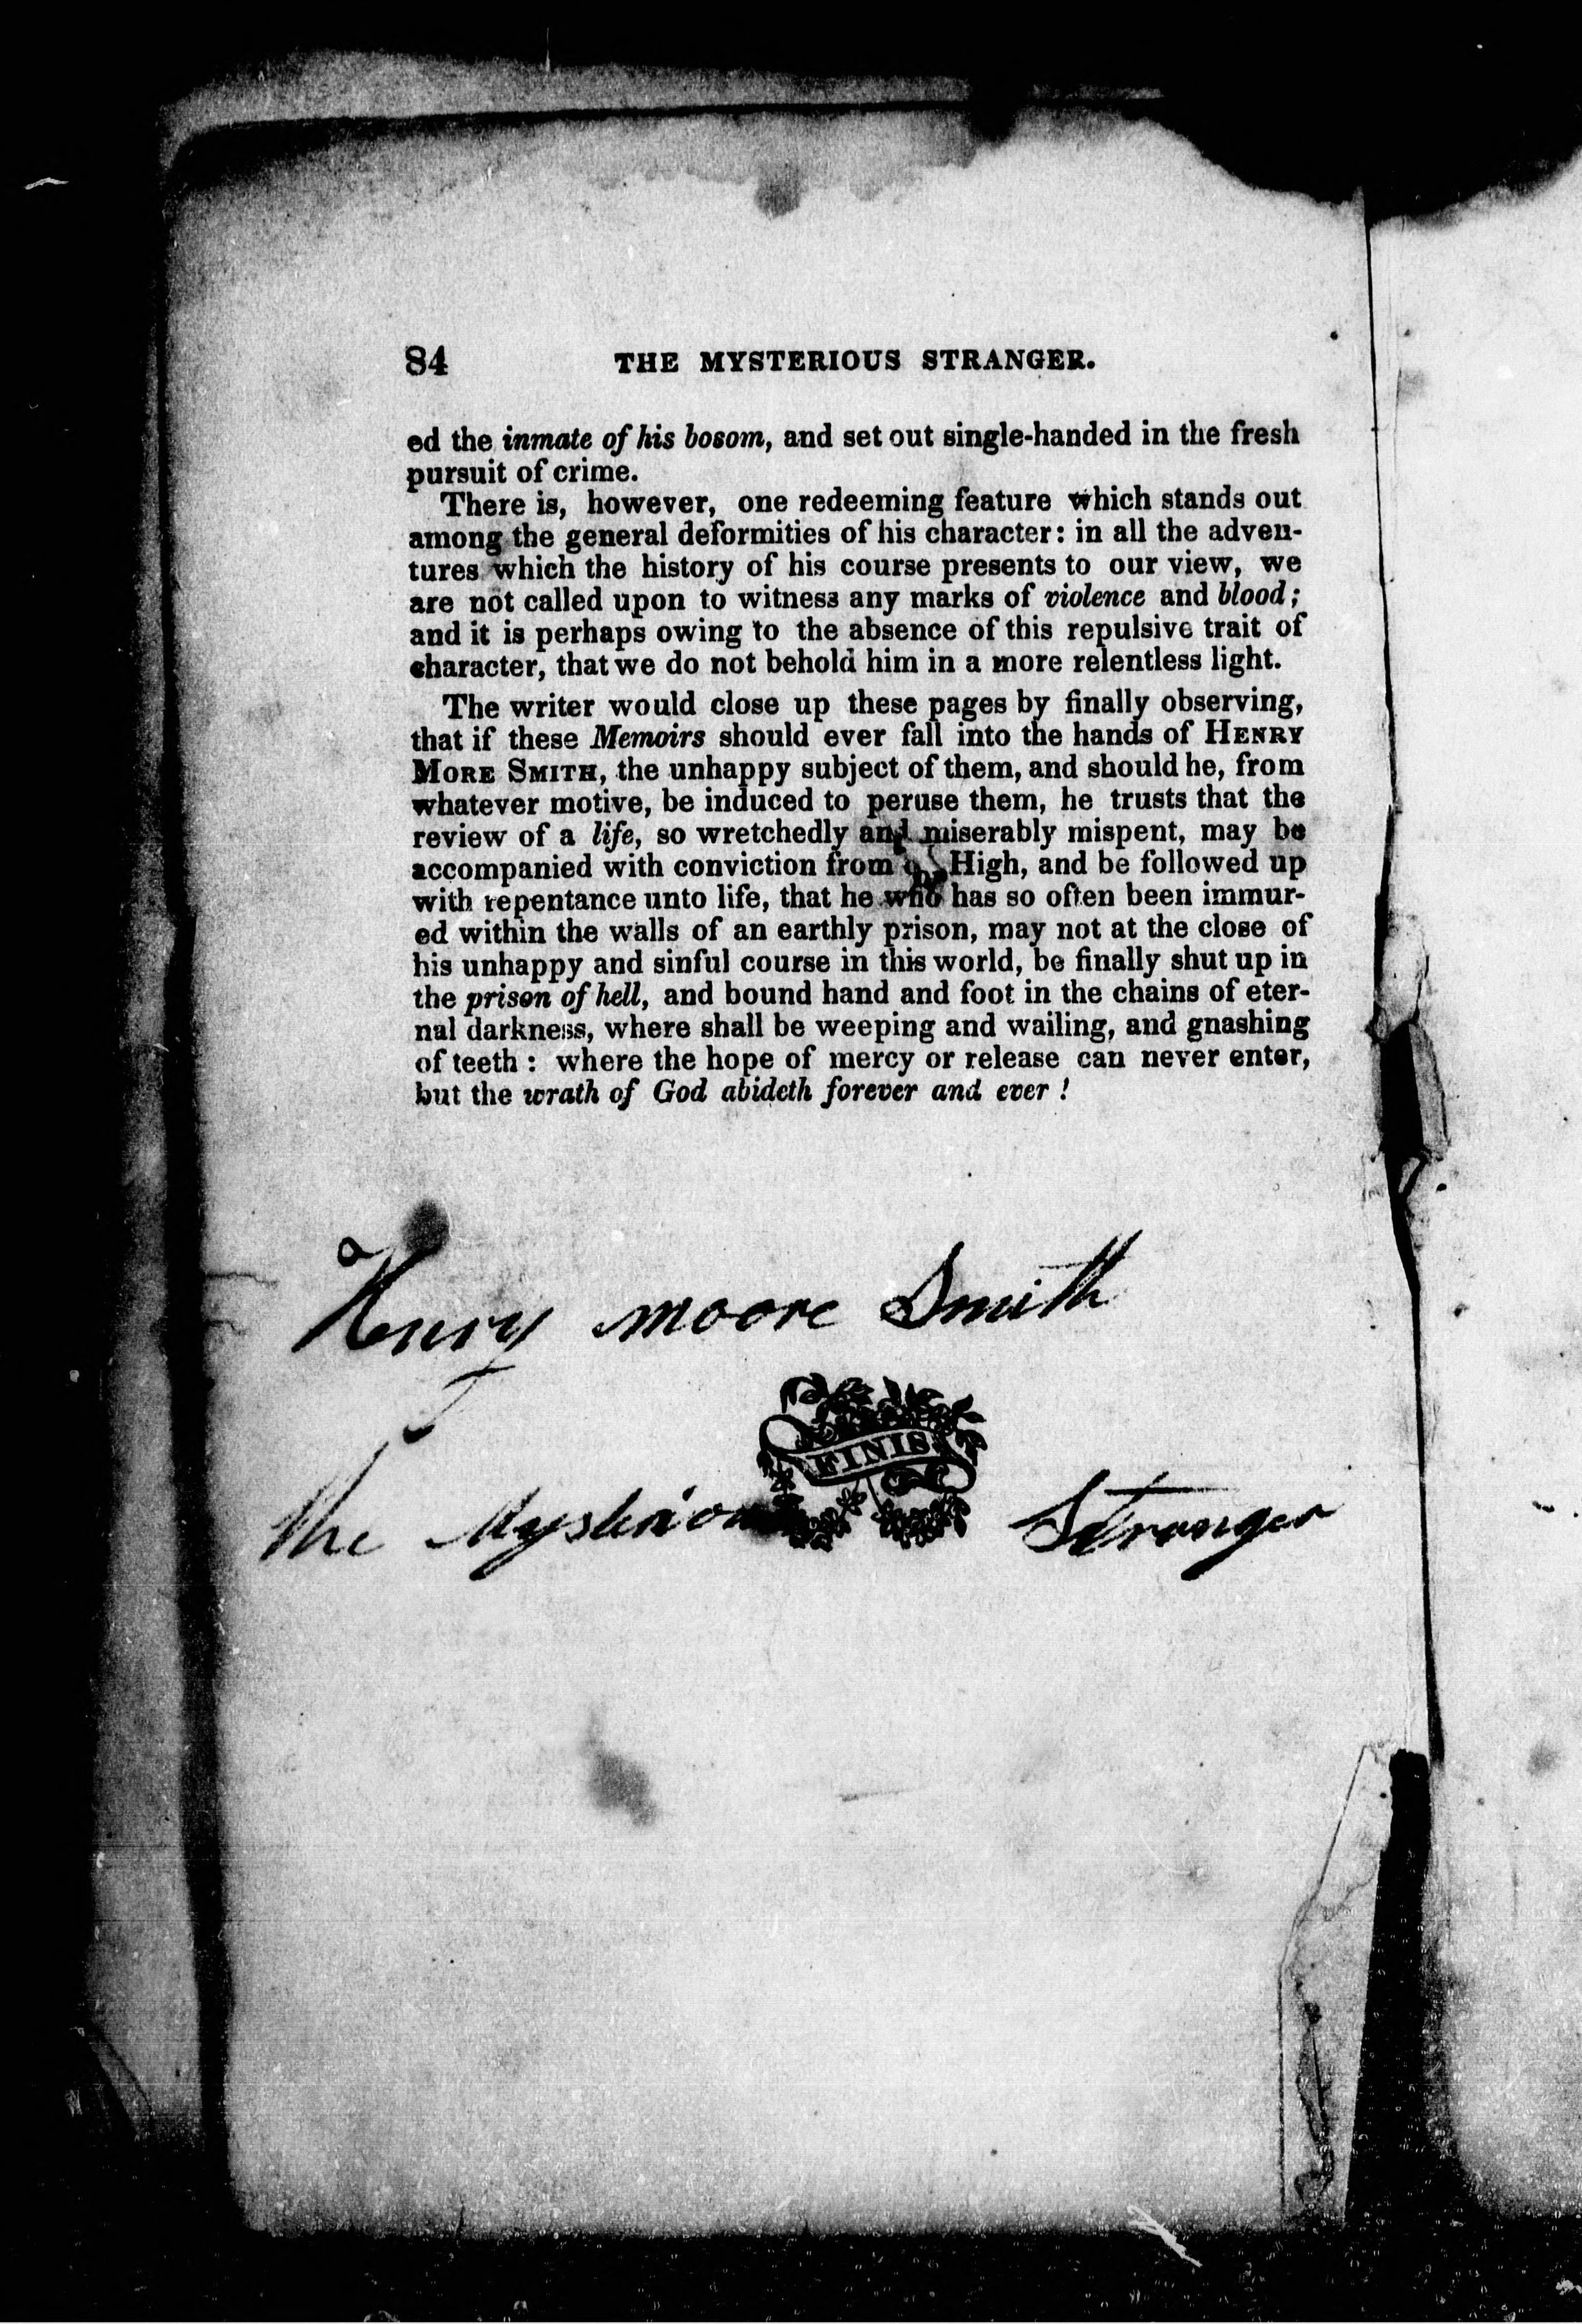 84 THE MYSTERIOUS STRANGER.
ed the inmate of his bosom, and set out single-handed in the fresh
pursuit of crime.
There is, however, one redeeming feature which stands out
among the general deformities of his character: in all the adven-
tures which the history of his course presents to our view, we
are not called upon to witness any marks of violence and blood;
and it is perhaps owing to the absence of this repulsive trait of
character, that we do not behold him in a more relentless light.
The writer would close up these pages by finally observing,
that if these Memoirs should ever fall into the hands of HENRY
MORE SMITH, the unhappy subject of them, and should he, from
whatever motive, be induced to peruse them, he trusts that the
review of a life, so wretchedly and miserably mispent, may be
accompanied with conviction from High, and be followed up
with repentance unto life, that he who has so often been immur-
ed within the walls of an earthly prison, may not at the close of
his unhappy and sinful course in this world, be finally shut up in
the prison of hell, and bound hand and foot in the chains of eter-
nal darkness, where shall be weeping and wailing, and gnashing
of teeth : where the hope of mercy or release can never enter,
but the wrath of God abideth forever and ever !
Henry moore Smith
FINIS
The Mysterious Stranger